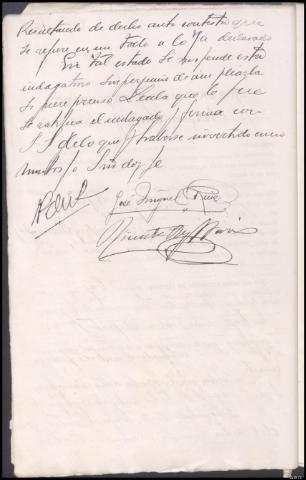 Resultando de dicho auto contesto que
se refiere en un todo a lo ya declarado
En tal estado se suspende esta
indagatoria sin perjuicio de ampliarla
si fuere preciso Leida que le fue
se ratifica el indagado y firma con
S. S. de lo que y haberse invertido cinco
minutos yo Srio doy fe
José Iñiguez Ruiz
Vicente